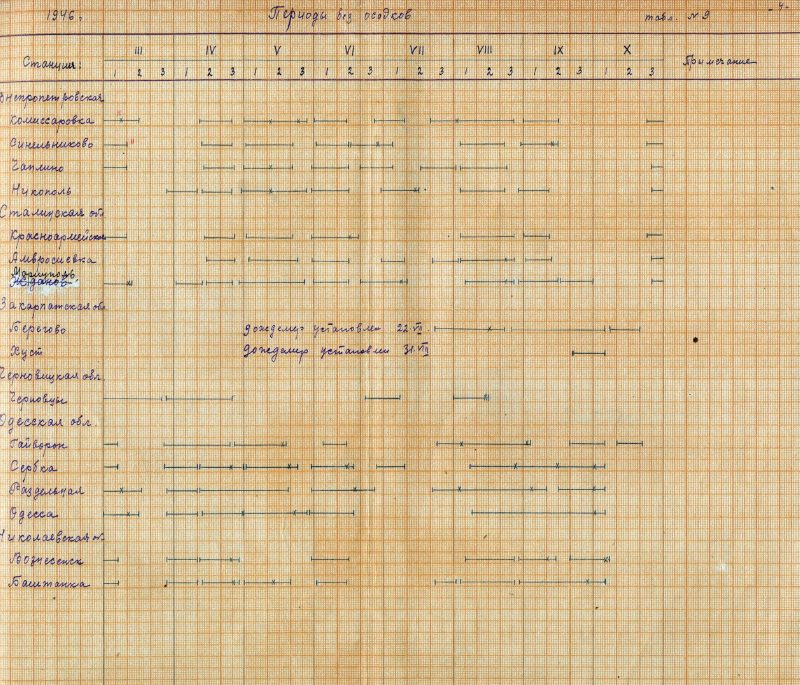 1946 г. Периоды без осадков табл. №9 -4-
III IV V VI VII VIII IX X
Станция: Примечание
1 2 3 1 2 3 1 2 3 1 2 3 1 2 3 1 2 3 1 2 3 1 2 3
Днепропетровская
Комиссаровка
Синельниково
Чаплино
Никополь
Сталинская обл
Красноармейск
Амвросиевка
Мариуполь
Жданов
Закарпатская обл.
Берегово дождемер установлен 22.VII.
Хуст дождемер установлен 31.VIII
Черновицкая обл.
Черновцы
Одесская обл.
Гайворон
Сербка
Раздельная
Одесса
Николаевская об.
Вознесенск
Баштанка